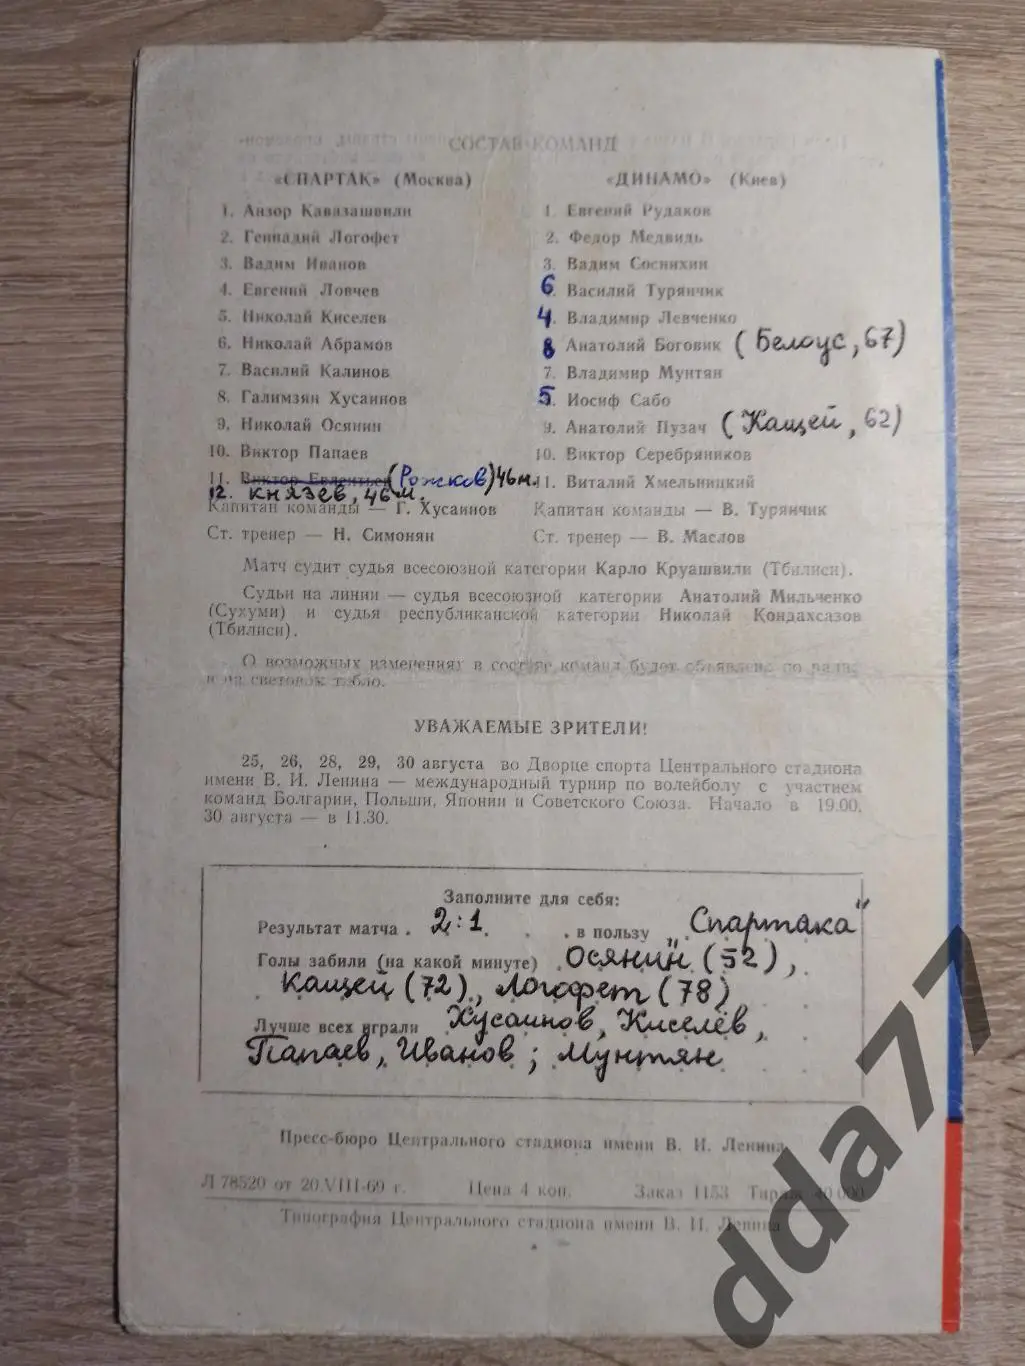 СОСТАВ КОМАНД
«СПАРТАК» (Москва)
1. Анзор Кавазашвили
2. Геннадий Логофет
3. Вадим Иванов
4. Евгений Ловчев
5. Николай Киселев
6. Николай Абрамов
7. Василий Калинов
8. Галимзян Хусаинов
9. Николай Осянин
10. Виктор Папаев
11. Виктор Евлентьев (Рожков) 46 м.
12. Князев, 46 м.
Капитан команды — Г. Хусаинов
Ст. тренер — Н. Симонян
«ДИНАМО» (Киев)
1. Евгений Рудаков
2. Федор Медвидь
3. Вадим Соснихин
6. Василий Турянчик
4. Владимир Левченко
8 Анатолий Боговик (Белоус, 67)
7. Владимир Мунтян
5. Иосиф Сабо
9. Анатолий Пузач (Кащей, 62)
10. Виктор Серебряников
11. Виталий Хмельницкий
Капитан команды — В. Турянчик
Ст. тренер — В. Маслов
Матч судит судья всесоюзной категории Карло Круашвили (Тбилиси).
Судьи на линии — судья всесоюзной категории Анатолий Мильченко
(Сухуми) и судья республиканской категории Николай Кондахсазов
(Тбилиси).
О возможных изменениях в составе команд будет объявлено по радио
и на световом табло.
УВАЖАЕМЫЕ ЗРИТЕЛИ!
25, 26, 28, 29, 30 августа во Дворце спорта Центрального стадиона
имени В. И. Ленина — международный турнир по волейболу с участием
команд Болгарии, Польши, Японии и Советского Союза. Начало в 19.00,
30 августа — в 11.30.
Заполните для себя:
Результат матча . 2:1 . . . в пользу "Спартака"
Голы забили (на какой минуте) Осянин (52),
Кащей (72), Логофет (78)
Лучше всех играли Хусаинов, Киселёв,
Папаев, Иванов; Мунтян
Пресс-бюро Центрального стадиона имени В. И. Ленина
Л 78520 от 20.VIII-69 г. Цена 4 коп. Заказ 1153 Тираж 40 000
Типография Центрального стадиона имени В. И. Ленина
dda77